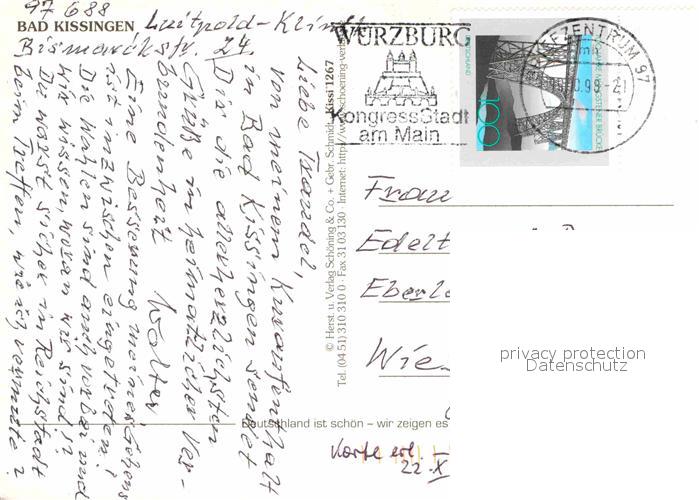 97688
BAD KISSINGEN Luitpold-Klinik
Bismarckstr. 24.
Liebe Traudel,
von meinem Kuraufenthalt
in Bad Kissingen sendet
Dir die allerherzlichsten
Grüße in heimatlicher Ver-
bundenheit Walter
Eine Besserung meines Gehens
ist inzwischen eingetreten!
Die Wahlen sind auch vorbei und
wir wissen, woran wir sind!?
Du warst sicher in Reichstadt
beim Treffen, wie ich vermute?
© Herst. u. Verlag Schöning & Co. + Gebr. Schmidt Kissi 1267
Tel. (04 51) 310 310 0 · Fax 31 03 130 · Internet: http://www.schoening-verl
WÜRZBURG
KongressStadt
am Main
FZENTRUM 97
mh
.98-21
100
Deutschland ist schön – wir zeigen es
Frau
Edelt
Eberle
Wie
privacy protection
Datenschutz
Karte erl.
22.X